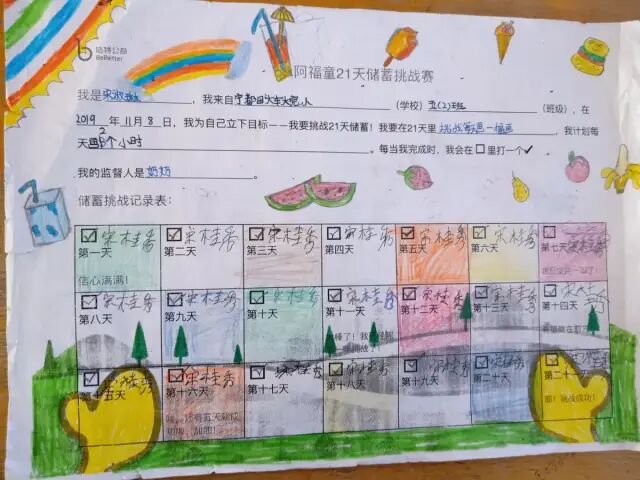 倍特公益
BeBetter
阿福童21天储蓄挑战赛
我是，我来自（学校）五(2)班（班级），在
2019年11月8日，我为自己立下目标——我要挑战21天储蓄！我要在21天里，我计划每
天画2个小时。每当我完成时，我会在□里打一个✓
我的监督人是奶奶
储蓄挑战记录表：
宋桂秀 宋桂秀 宋桂秀 宋桂秀 宋桂秀 宋桂秀 宋桂秀
第一天 第二天 第三天 第四天 第五天 第六天 第七天
信心满满！
宋桂秀 宋桂秀 宋桂秀 宋桂秀 宋桂秀 宋桂秀 宋桂秀
第八天 第九天 第十天 第十一天 第十二天 第十三天 第十四天
宋桂秀 宋桂秀 宋桂秀 宋桂秀 宋桂秀 宋桂秀 宋桂秀
第十五天 第十六天 第十七天 第十八天 第十九天 第二十天 第二十一天
挑战成功！